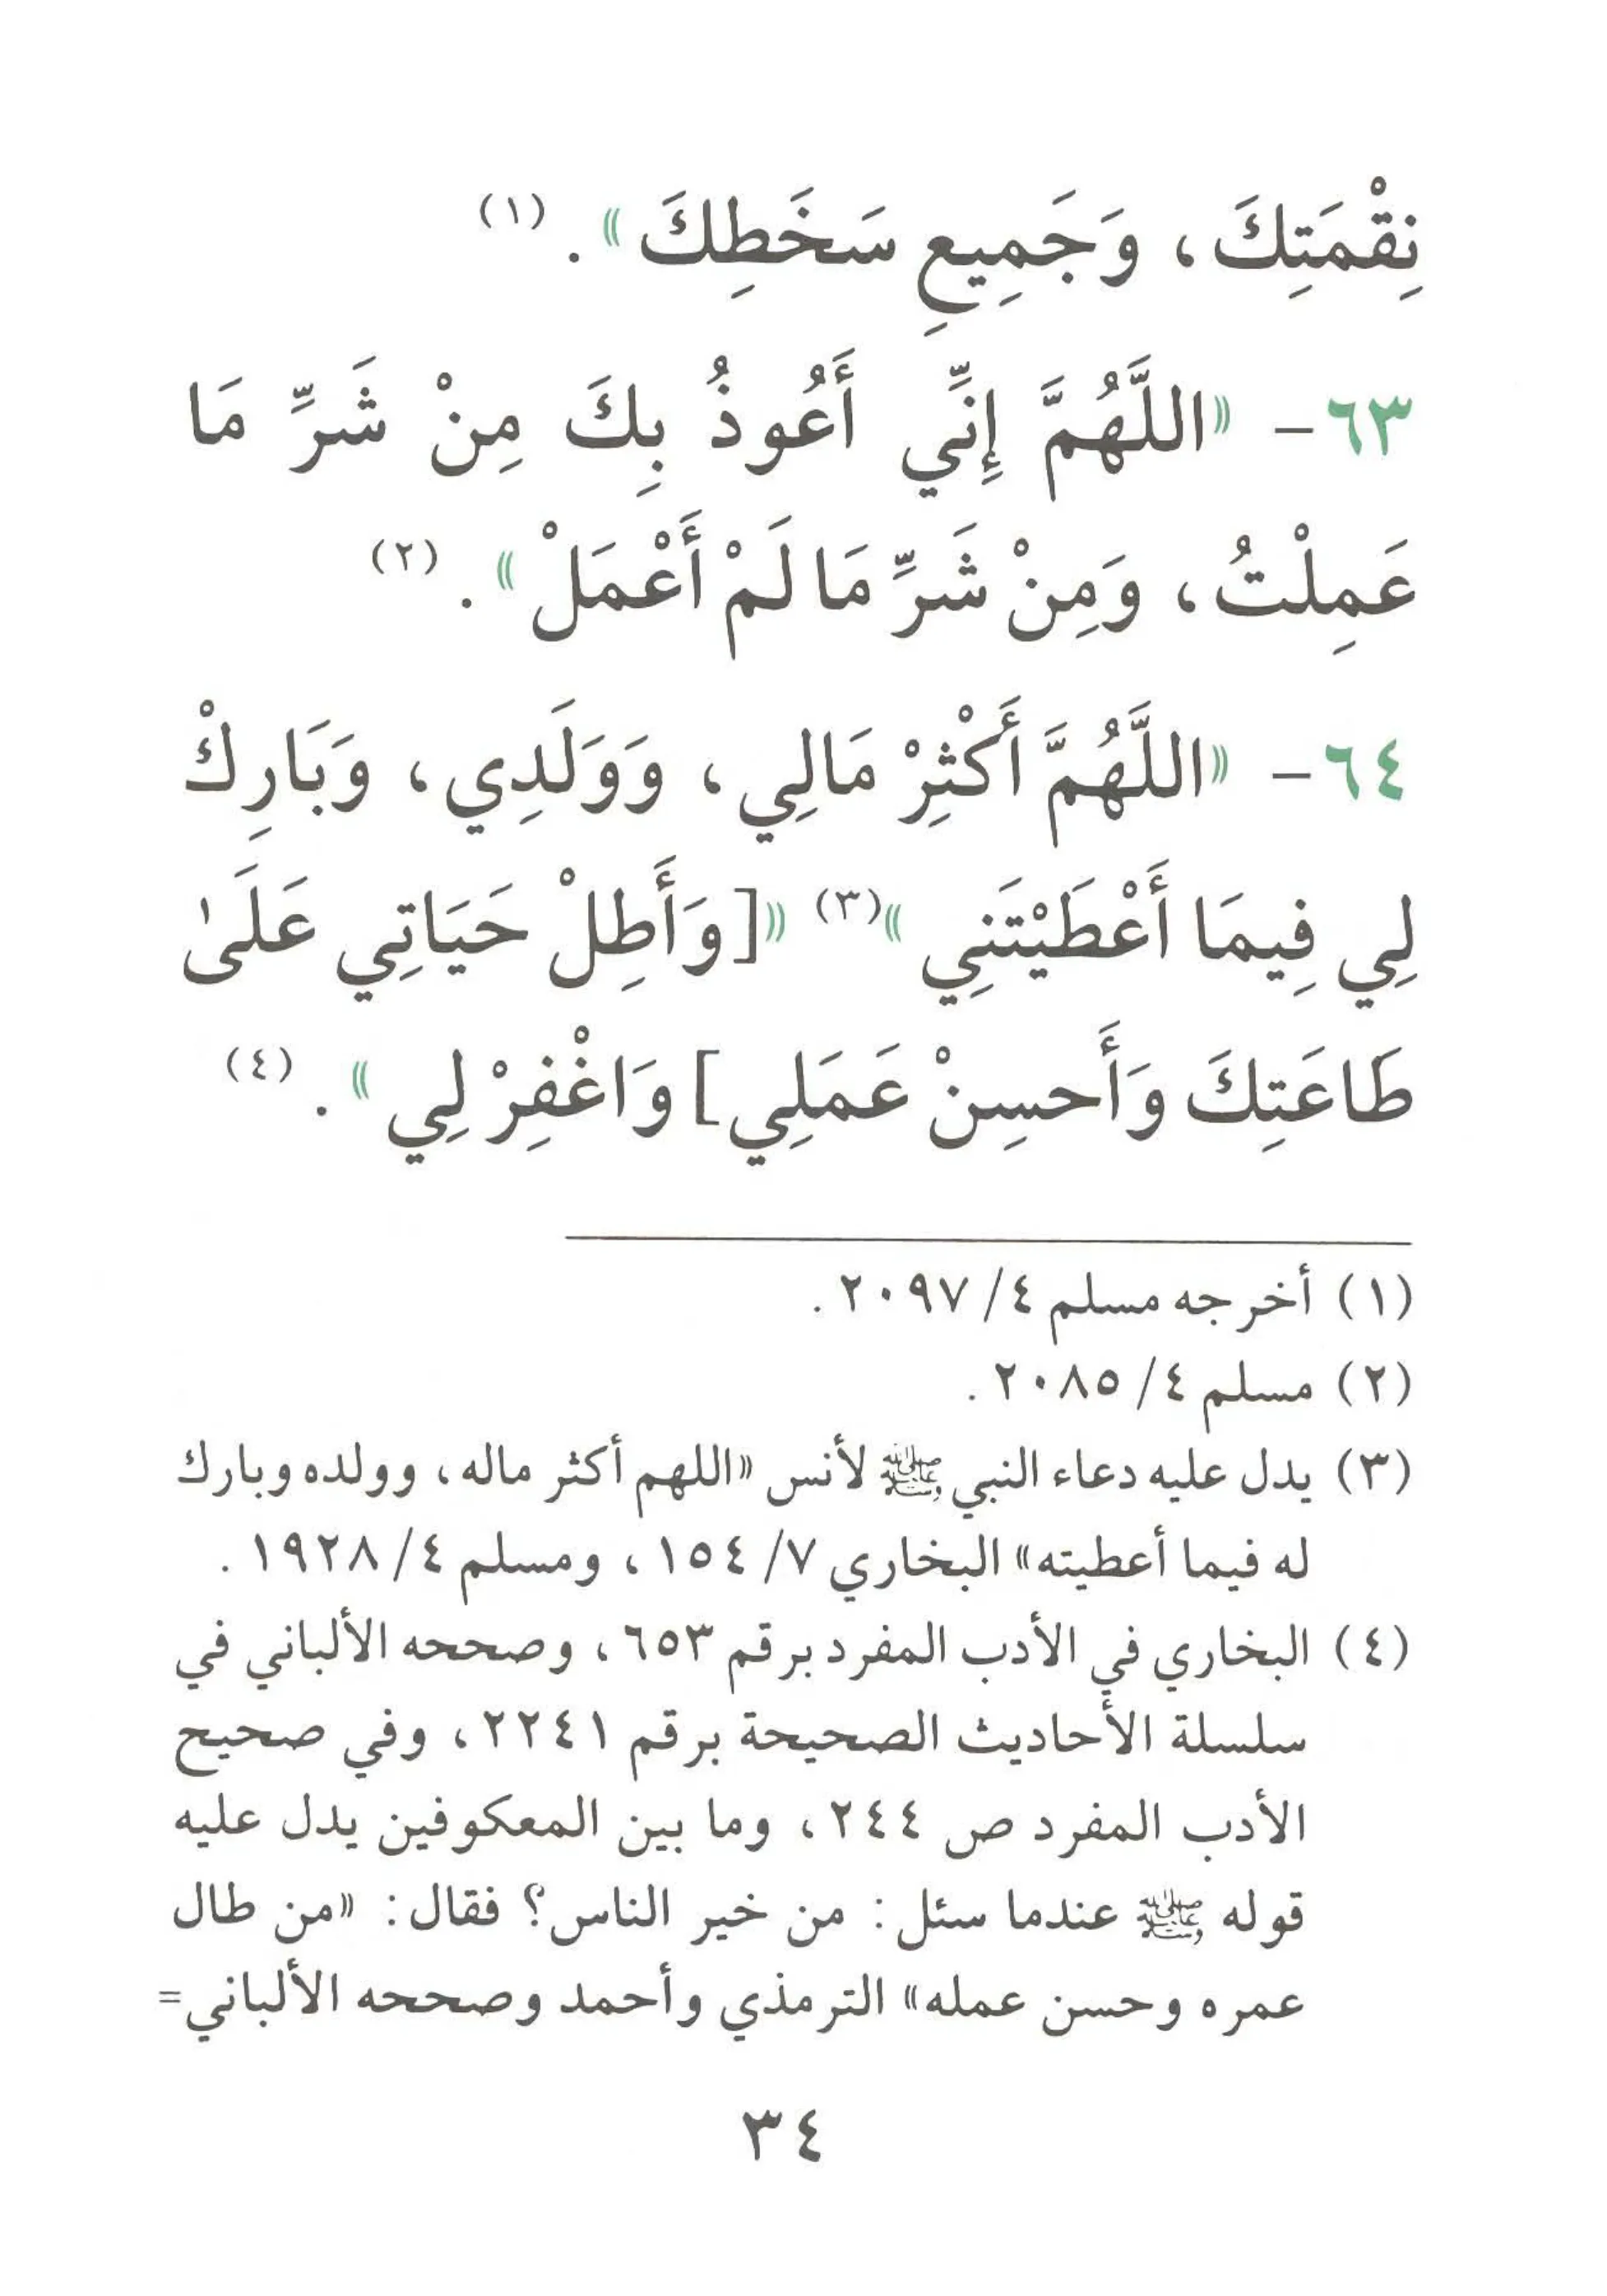 نِقْمَتِكَ، وَجَمِيعِ سَخَطِكَ». (١)
٦٣- «اللَّهُمَّ إِنِّي أَعُوذُ بِكَ مِنْ شَرِّ مَا
عَمِلْتُ، وَمِنْ شَرِّ مَا لَمْ أَعْمَلْ». (٢)
٦٤- «اللَّهُمَّ أَكْثِرْ مَالِي، وَوَلَدِي، وَبَارِكْ
لِي فِيمَا أَعْطَيْتَنِي»(٣) «[وَأَطِلْ حَيَاتِي عَلَىٰ
طَاعَتِكَ وَأَحسِنْ عَمَلِي] وَاغْفِرْ لِي». (٤)
(١) أخرجه مسلم ٤/ ٢٠٩٧.
(٢) مسلم ٤/ ٢٠٨٥.
(٣) يدل عليه دعاء النبي ﷺ لأنس «اللهم أكثر ماله، وولده وبارك
له فيما أعطيته» البخاري ٧/ ١٥٤، ومسلم ٤/ ١٩٢٨.
(٤) البخاري في الأدب المفرد برقم ٦٥٣، وصححه الألباني في
سلسلة الأحاديث الصحيحة برقم ٢٢٤١، وفي صحيح
الأدب المفرد ص ٢٤٤، وما بين المعكوفين يدل عليه
قوله ﷺ عندما سئل: من خير الناس؟ فقال: «من طال
عمره وحسن عمله» الترمذي وأحمد وصححه الألباني=
٣٤